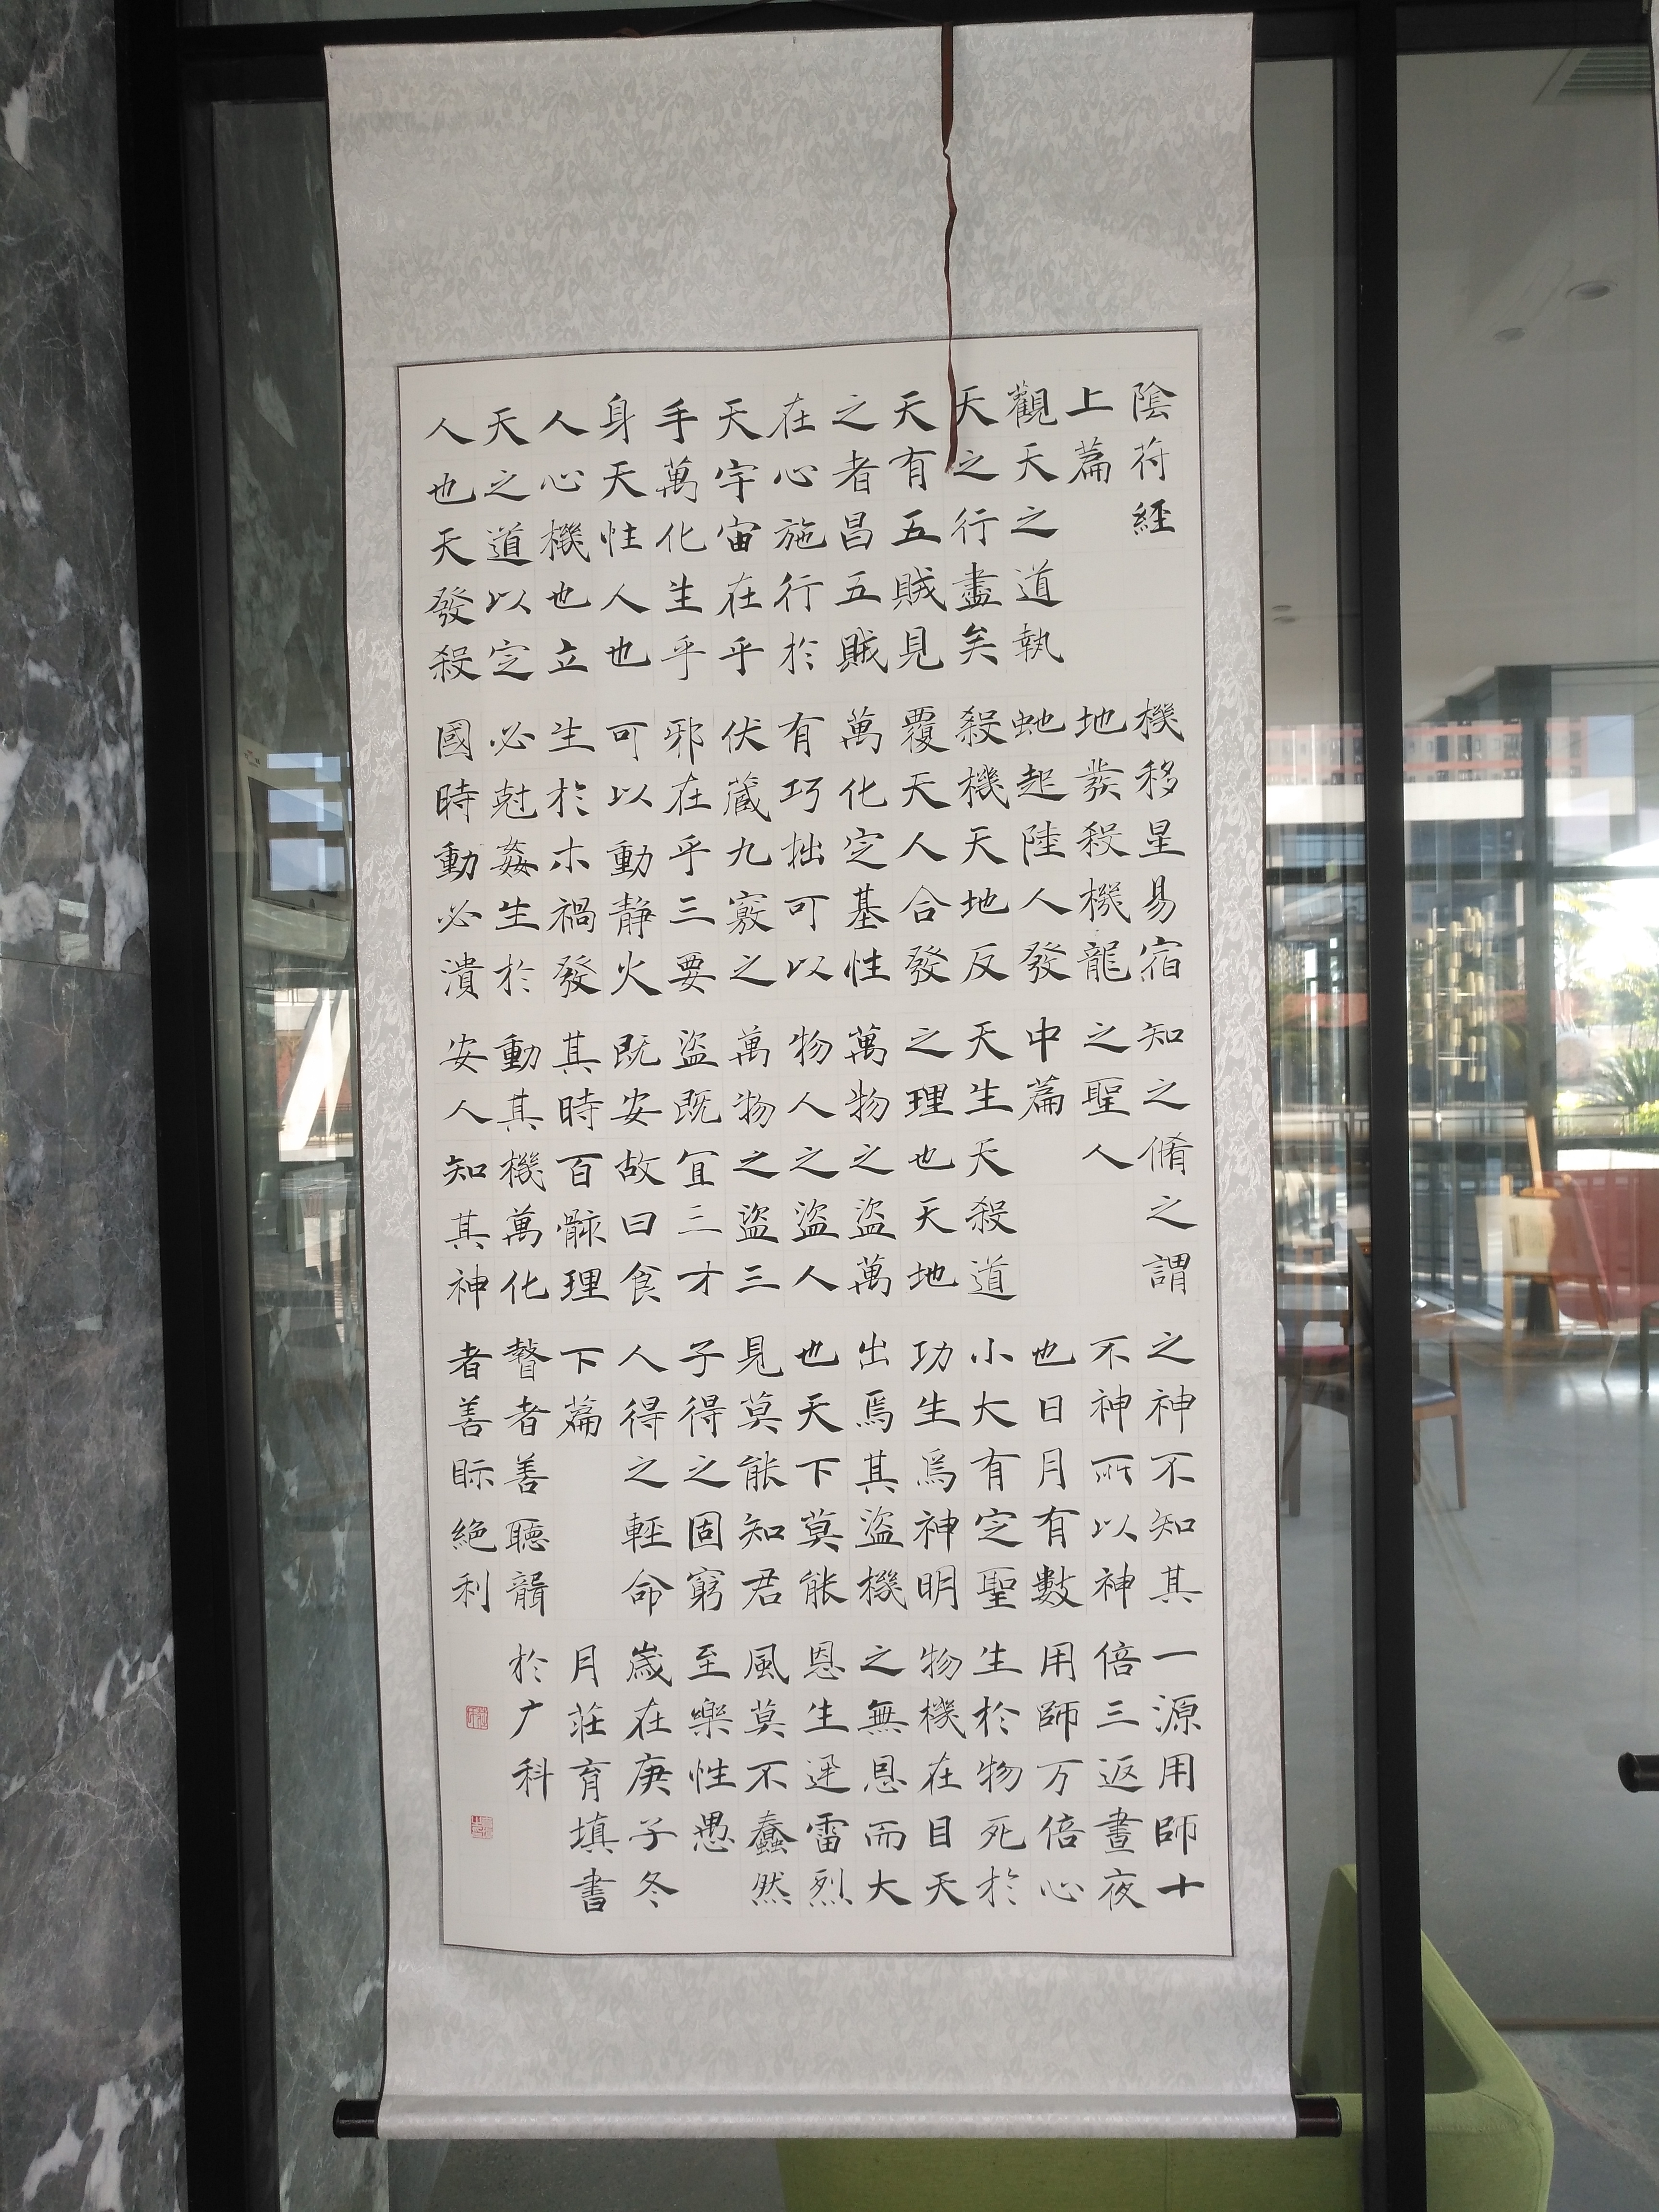 陰符經
上篇
觀天之道執
天之行盡矣
天有五賊見
之者昌五賊
在心施行於
天宇宙在乎
手萬化生乎
身天性人也
人心機也立
天之道以定
人也天發殺
機移星易宿
地發殺機龍
虵起陸人發
殺機天地反
覆天人合發
萬化定基性
有巧拙可以
伏藏九竅之
邪在乎三要
可以動靜火
生於木禍發
必尅姦生於
國時動必潰
知之脩之謂
之聖人
中篇
天生天殺道
之理也天地
萬物之盜萬
物人之盜人
萬物之盜三
盜既宜三才
既安故曰食
其時百骸理
動其機萬化
安人知其神
之神不知其
不神所以神
也日月有數
小大有定聖
功生焉神明
出焉其盜機
也天下莫能
見莫能知君
子得之固窮
人得之輕命
下篇
瞽者善聽聾
者善眎絶利
一源用師十
倍三返晝夜
用師万倍心
生於物死於
物機在目天
之無恩而大
恩生迅雷烈
風莫不蠢然
至樂性愚
歲在庚子冬
月莊育填書
於广科